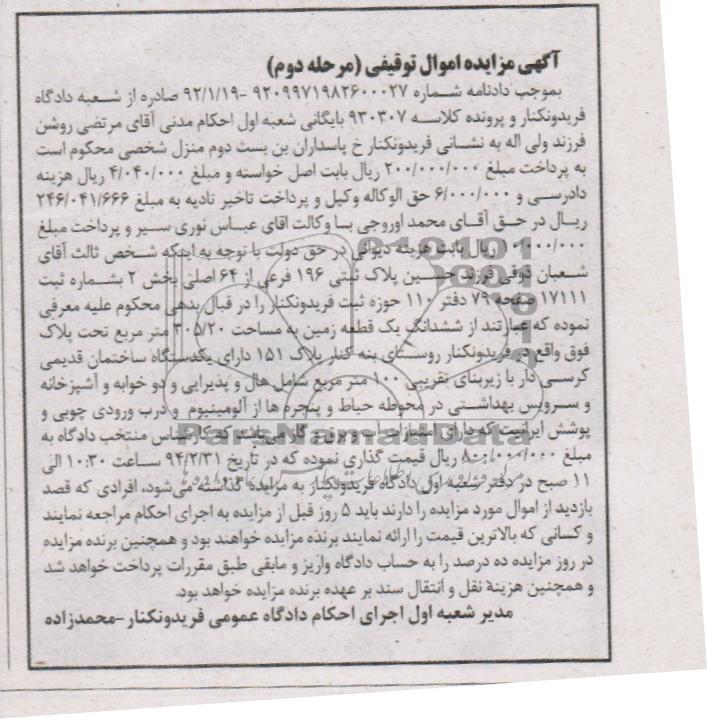 آگهی مزایده اموال توقیفی (مرحله دوم)
بموجب دادنامه شماره ۹۲۰۹۹۷۱۹۸۲۶۰۰۰۲۷ -۹۲/۱/۱۹ صادره از شعبه دادگاه
فریدونکنار و پرونده کلاسه ۹۳۰۳۰۷ بایگانی شعبه اول احکام مدنی آقای مرتضی روشن
فرزند ولی اله به نشانی فریدونکنار خ پاسداران بن بست دوم منزل شخصی محکوم است
به پرداخت مبلغ ۲۰۰/۰۰۰/۰۰۰ ریال بابت اصل خواسته و مبلغ ۴/۰۴۰/۰۰۰ ریال هزینه
دادرسی و ۶/۰۰۰/۰۰۰ حق الوکاله وکیل و پرداخت تاخیر تادیه به مبلغ ۲۴۶/۰۴۱/۶۶۶
ریال در حق آقای محمد اوروجی با وکالت اقای عباس نوری سیر و پرداخت مبلغ
ریال بابت هزینه دیوانی در حق دولت با توجه به اینکه شخص ثالث آقای
شعبان ذوقی فرزند حسین پلاک ثبتی ۱۹۶ فرعی از ۶۴ اصلی بخش ۲ بشماره ثبت
۱۷۱۱۱ صفحه ۷۹ دفتر ۱۱۰ حوزه ثبت فریدونکنار را در قبال بدهی محکوم علیه معرفی
نموده که عبارتند از ششدانگ یک قطعه زمین به مساحت ۳۰۵/۲۰ متر مربع تحت پلاک
فوق واقع در فریدونکنار روستای بنه کنار پلاک ۱۵۱ دارای یکدستگاه ساختمان قدیمی
کرسی دار با زیربنای تقریبی ۱۰۰ متر مربع شامل هال و پذیرایی و دو خوابه و آشپزخانه
و سرویس بهداشتی در محوطه حیاط و پنجره ها از آلومینیوم و درب ورودی چوبی و
پوشش ایرانیت که دارای امتیازات آب و برق و گاز می باشد که کارشناس منتخب دادگاه به
مبلغ ۸۰۰/۰۰۰/۰۰۰ ریال قیمت گذاری نموده که در تاریخ ۹۴/۲/۳۱ ساعت ۱۰:۳۰ الی
۱۱ صبح در دفتر شعبه اول دادگاه فریدونکنار به مزایده گذاشته می‌شود، افرادی که قصد
بازدید از اموال مورد مزایده را دارند باید ۵ روز قبل از مزایده به اجرای احکام مراجعه نمایند
و کسانی که بالاترین قیمت را ارائه نمایند برنده مزایده خواهند بود و همچنین برنده مزایده
در روز مزایده ده درصد را به حساب دادگاه واریز و مابقی طبق مقررات پرداخت خواهد شد
و همچنین هزینهٔ نقل و انتقال سند بر عهده برنده مزایده خواهد بود.
مدیر شعبه اول اجرای احکام دادگاه عمومی فریدونکنار-محمدزاده
ParsNamadData